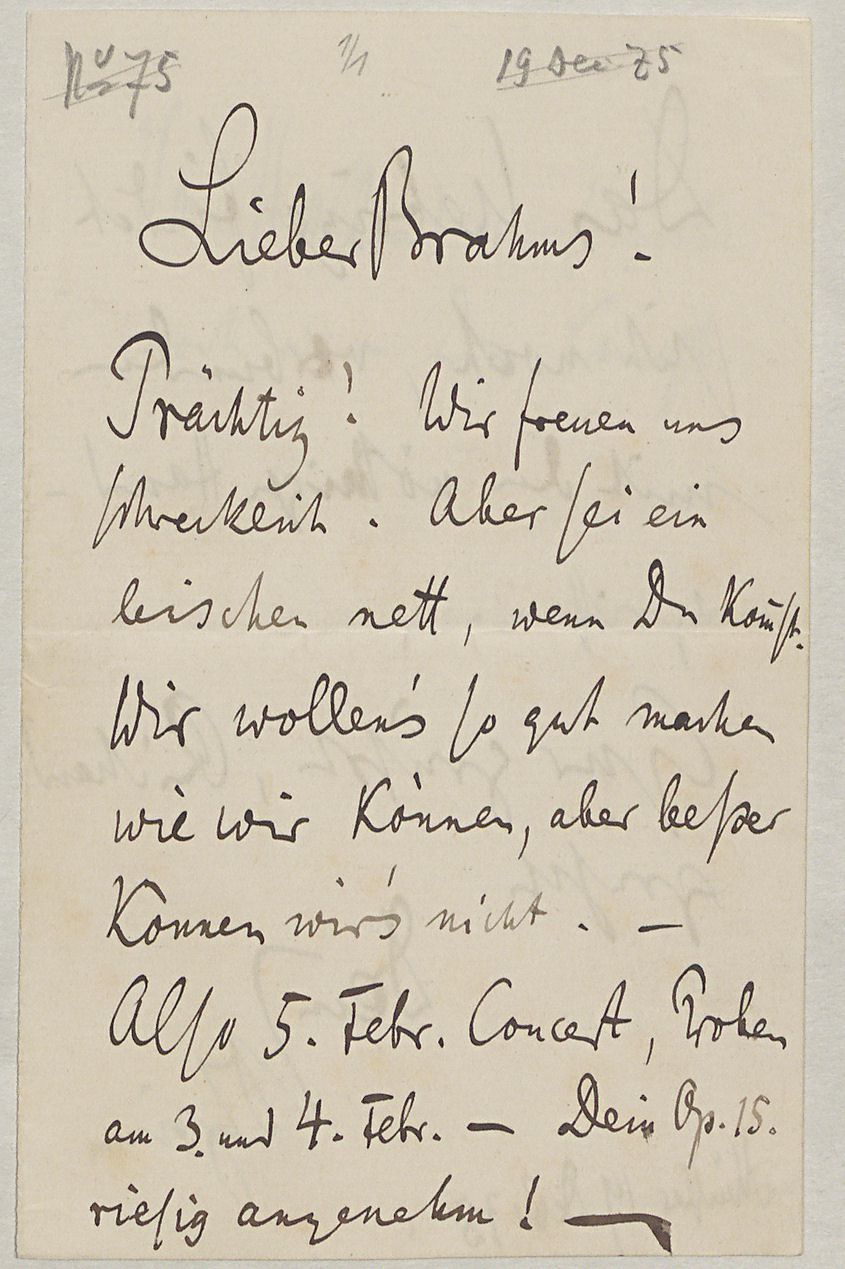 No 75 1/1 19 Dec 75
Lieber Brahms!
Prächtig! Wir freuen uns
schrecklich. Aber sei ein
bischen nett, wenn Du kom̄st.
Wir wollen's so gut machen
wie wir können, aber beßer
können wir's nicht. —
Also 5. Febr. Concert, Proben
am 3. und 4. Febr. — Dein Op. 15.
riesig angenehm! —